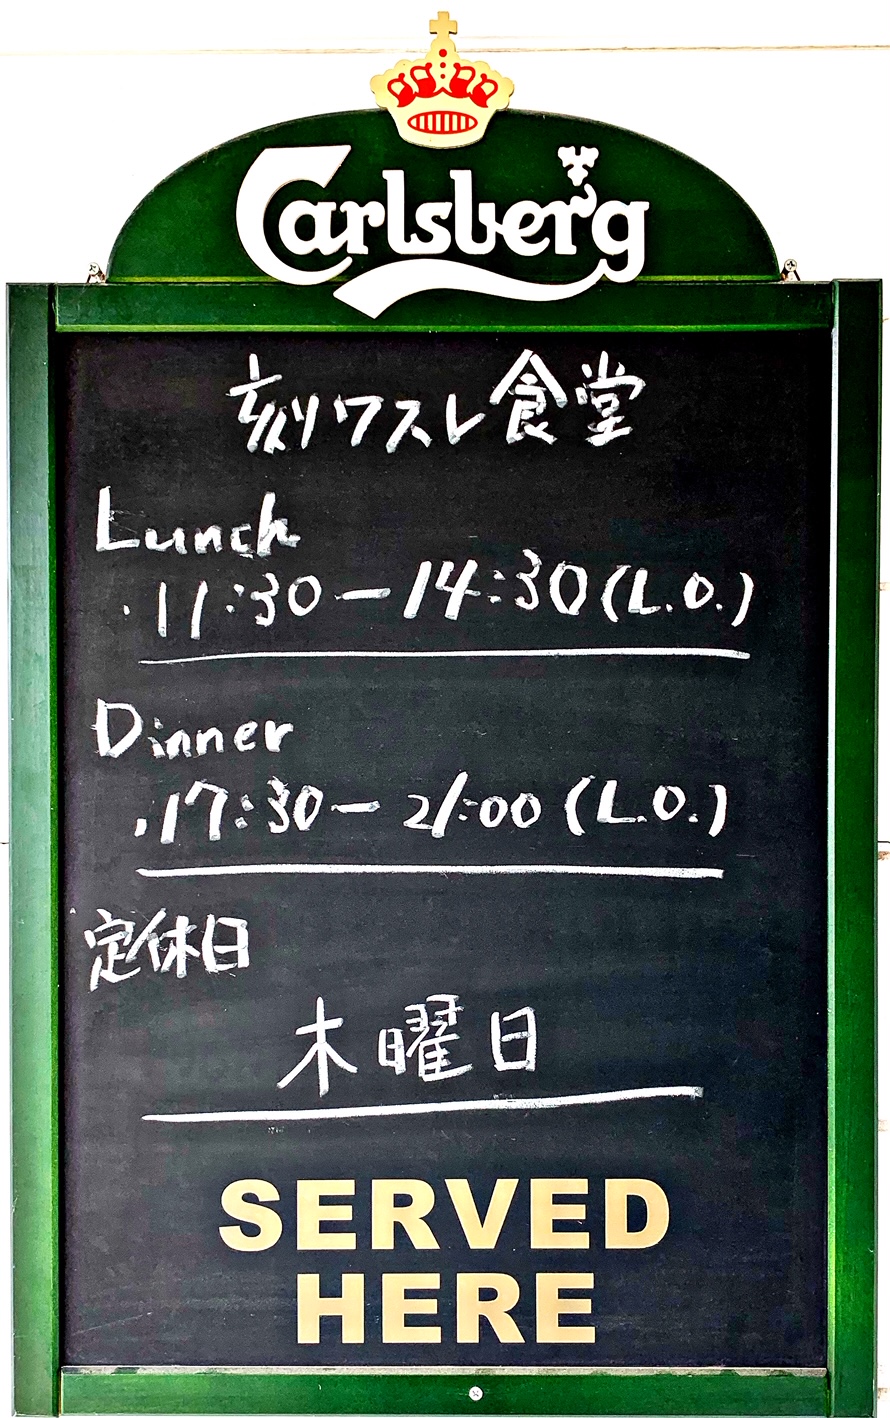 Carlsberg
刻ワスレ食堂
Lunch
・11:30ー14:30(L.O.)
Dinner
・17:30ー21:00(L.O.)
定休日
木曜日
SERVED
HERE